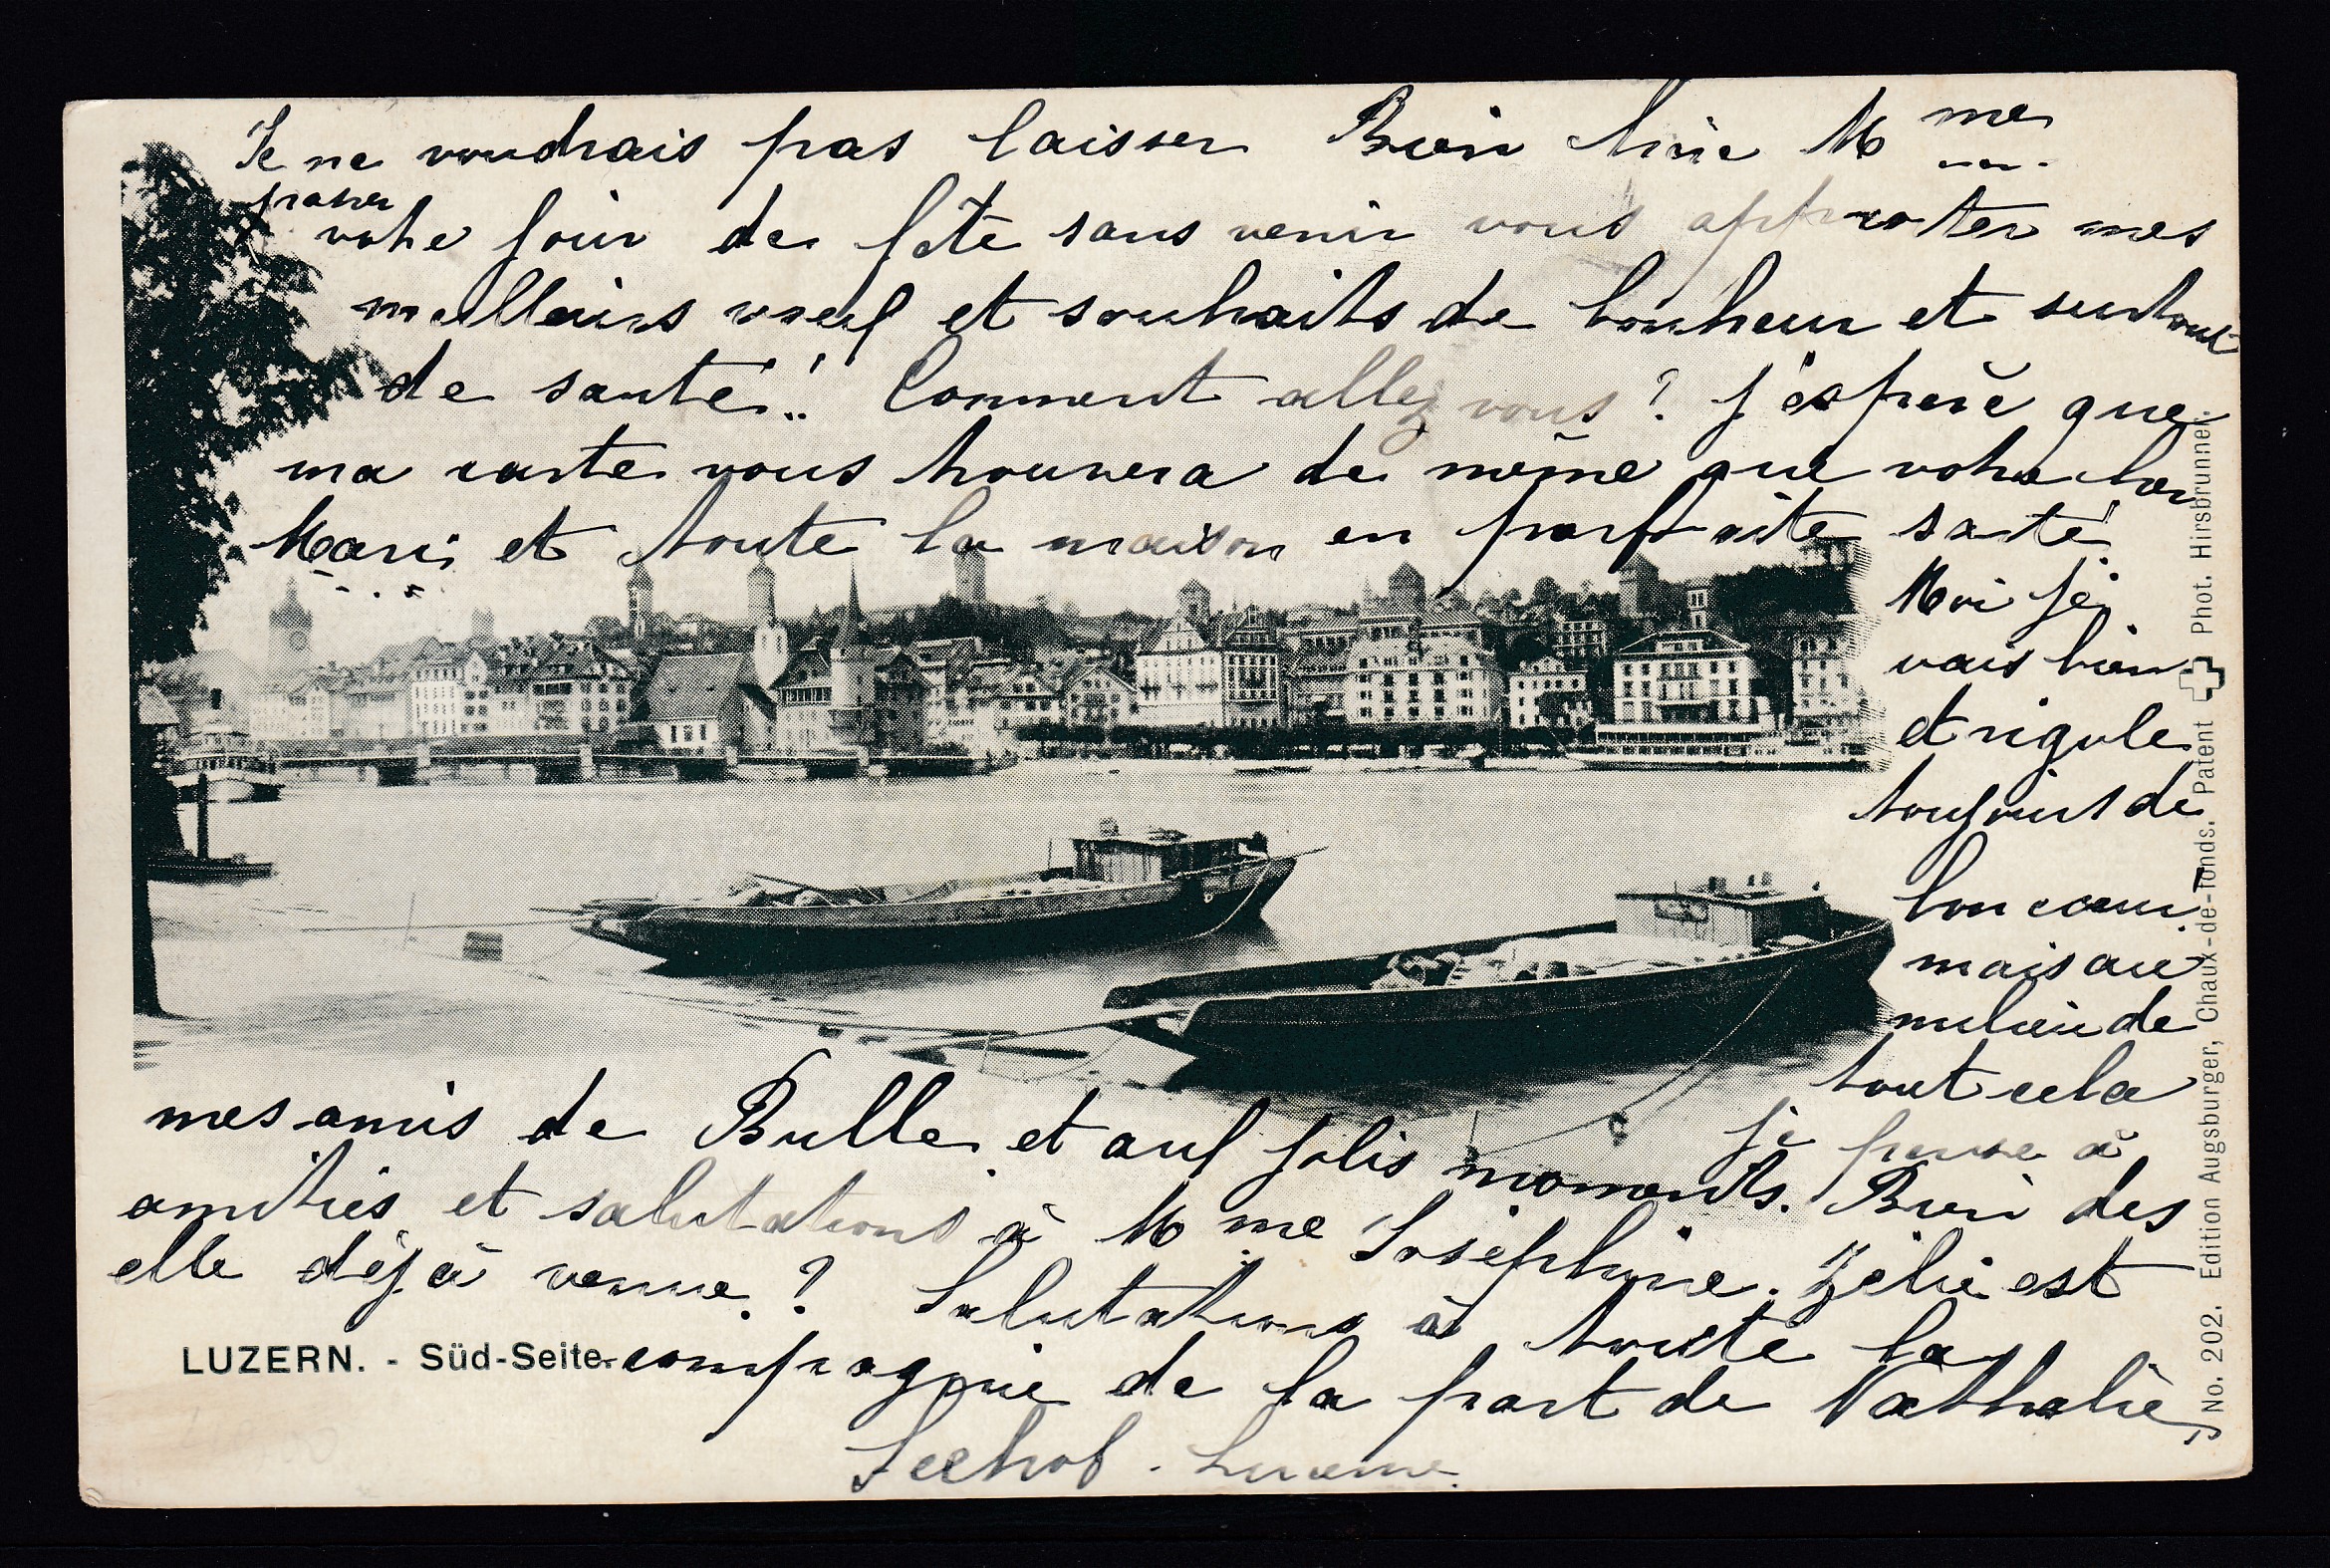 Je ne voudrais pas laisser Bien chère Mme
passer
votre jour de fête sans venir vous apporter mes
meilleurs vœux et souhaits de bonheur et surtout
de santé!! Comment allez vous? J'espère que
ma carte vous trouvera de même que votre bon
Mari et toute la maison en parfaite santé.
Moi je
vais bien
et rigole
toujours de
bon cœur.
mais au
milieu de
tout cela
je pense à
mes amis de Bulle et aux jolis moments. Bien des
amitiés et salutations à Mme Joséphine. Zélie est
elle déjà venue? Salutations à toute la
compagnie de la part de Nathalie
Seehof - Lucerne.
LUZERN. - Süd-Seite.
No. 202. Edition Augsburger, Chaux-de-fonds. Patent Phot. Hirsbrunner.